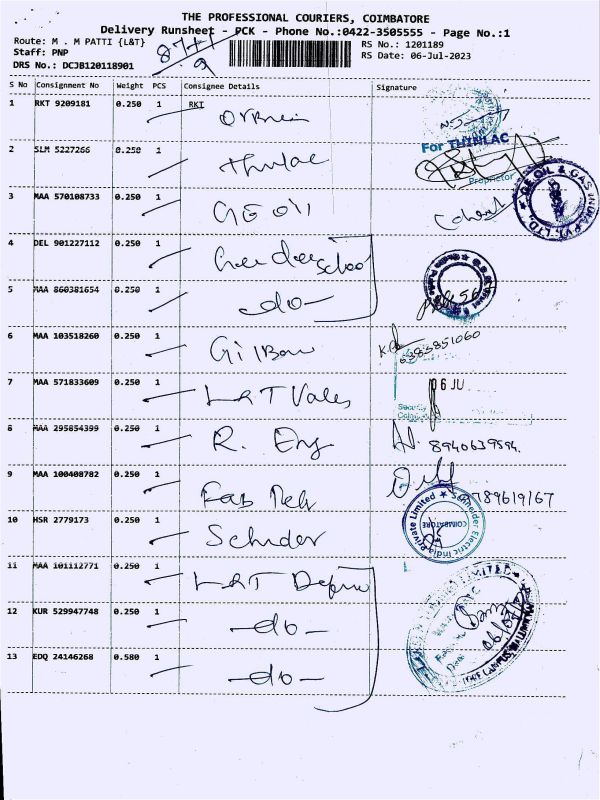 THE PROFESSIONAL COURIERS, COIMBATORE
Delivery Runsheet - PCK - Phone No.:0422-3505555 - Page No.:1
Route: M . M PATTI {L&T}
RS No.: 1201189
Staff: PNP
RS Date: 06-Jul-2023
DRS No.: DCJB120118901
9
S No Consignment No Weight PCS Consignee Details Signature
1 RKT 9209181 0.250 1 RKI
2 SLM 5227266 0.250 1 For THINLAC
Proprietor
3 MAA 570108733 0.250 1 GE Oil GE OIL & GAS INDIA PVT. LTD.
4 DEL 901227112 0.250 1 School
5 MAA 860381654 0.250 1 -do-
6 MAA 103518260 0.250 1 Gilbarco 6383851060
7 MAA 571833609 0.250 1 L&T Valves 06 JU
Security
8 MAA 295854399 0.250 1 R. Eng 8940639594
9 MAA 100408782 0.250 1 789619167
10 HSR 2779173 0.250 1 Schider Schneider Electric India Private Limited COIMBATORE
11 MAA 101112771 0.250 1 L&T LIMITED
12 KUR 529947748 0.250 1 -do-
13 EDQ 24146268 0.580 1 -do-